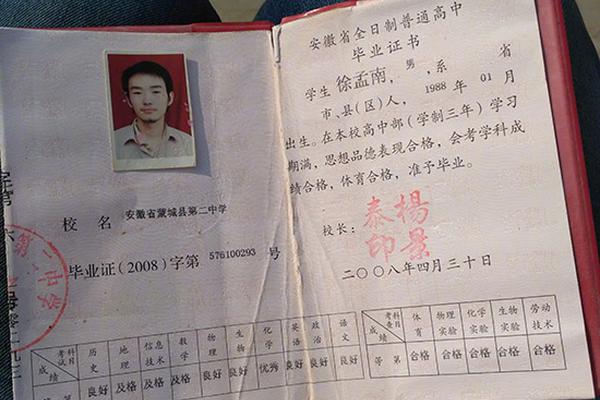 校名 安徽省蒙城县第二中学
毕业证(2008)字第 576100293 号
第二中学
考试科目 历史 地理 信息技术 数学 物理 生物 化学 英语 政治 语文
成绩 第 良好 及格 及格 及格 良好 良好 优秀 良好 良好 良好
安徽省全日制普通高中
毕业证书
学生 徐孟南，男，系 省
市、县(区)人，1988 年 01 月
出生。在本校高中部(学制三年)学习
期满，思想品德表现合格，会考学科成
绩合格，体育合格，准予毕业。
校长：
楊景
泰印
二〇〇八年四月三十日
考查科目 体育 物理实验 化学实验 生物实验 劳动技术
成绩 等第 合格 合格 合格 合格 合格